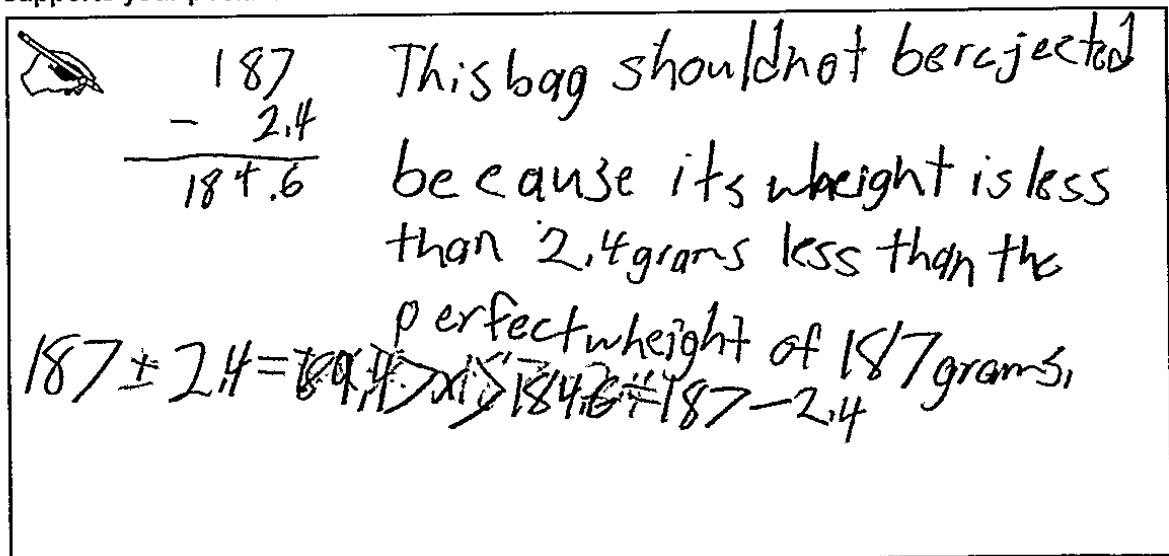 187
- 2.4
184.6
This bag should not be rejected
because its wheight is less
than 2.4 grams less than the
perfect wheight of 187 grams.
187 ± 2.4 = 189.4 > x > 184.6 = 187 - 2.4